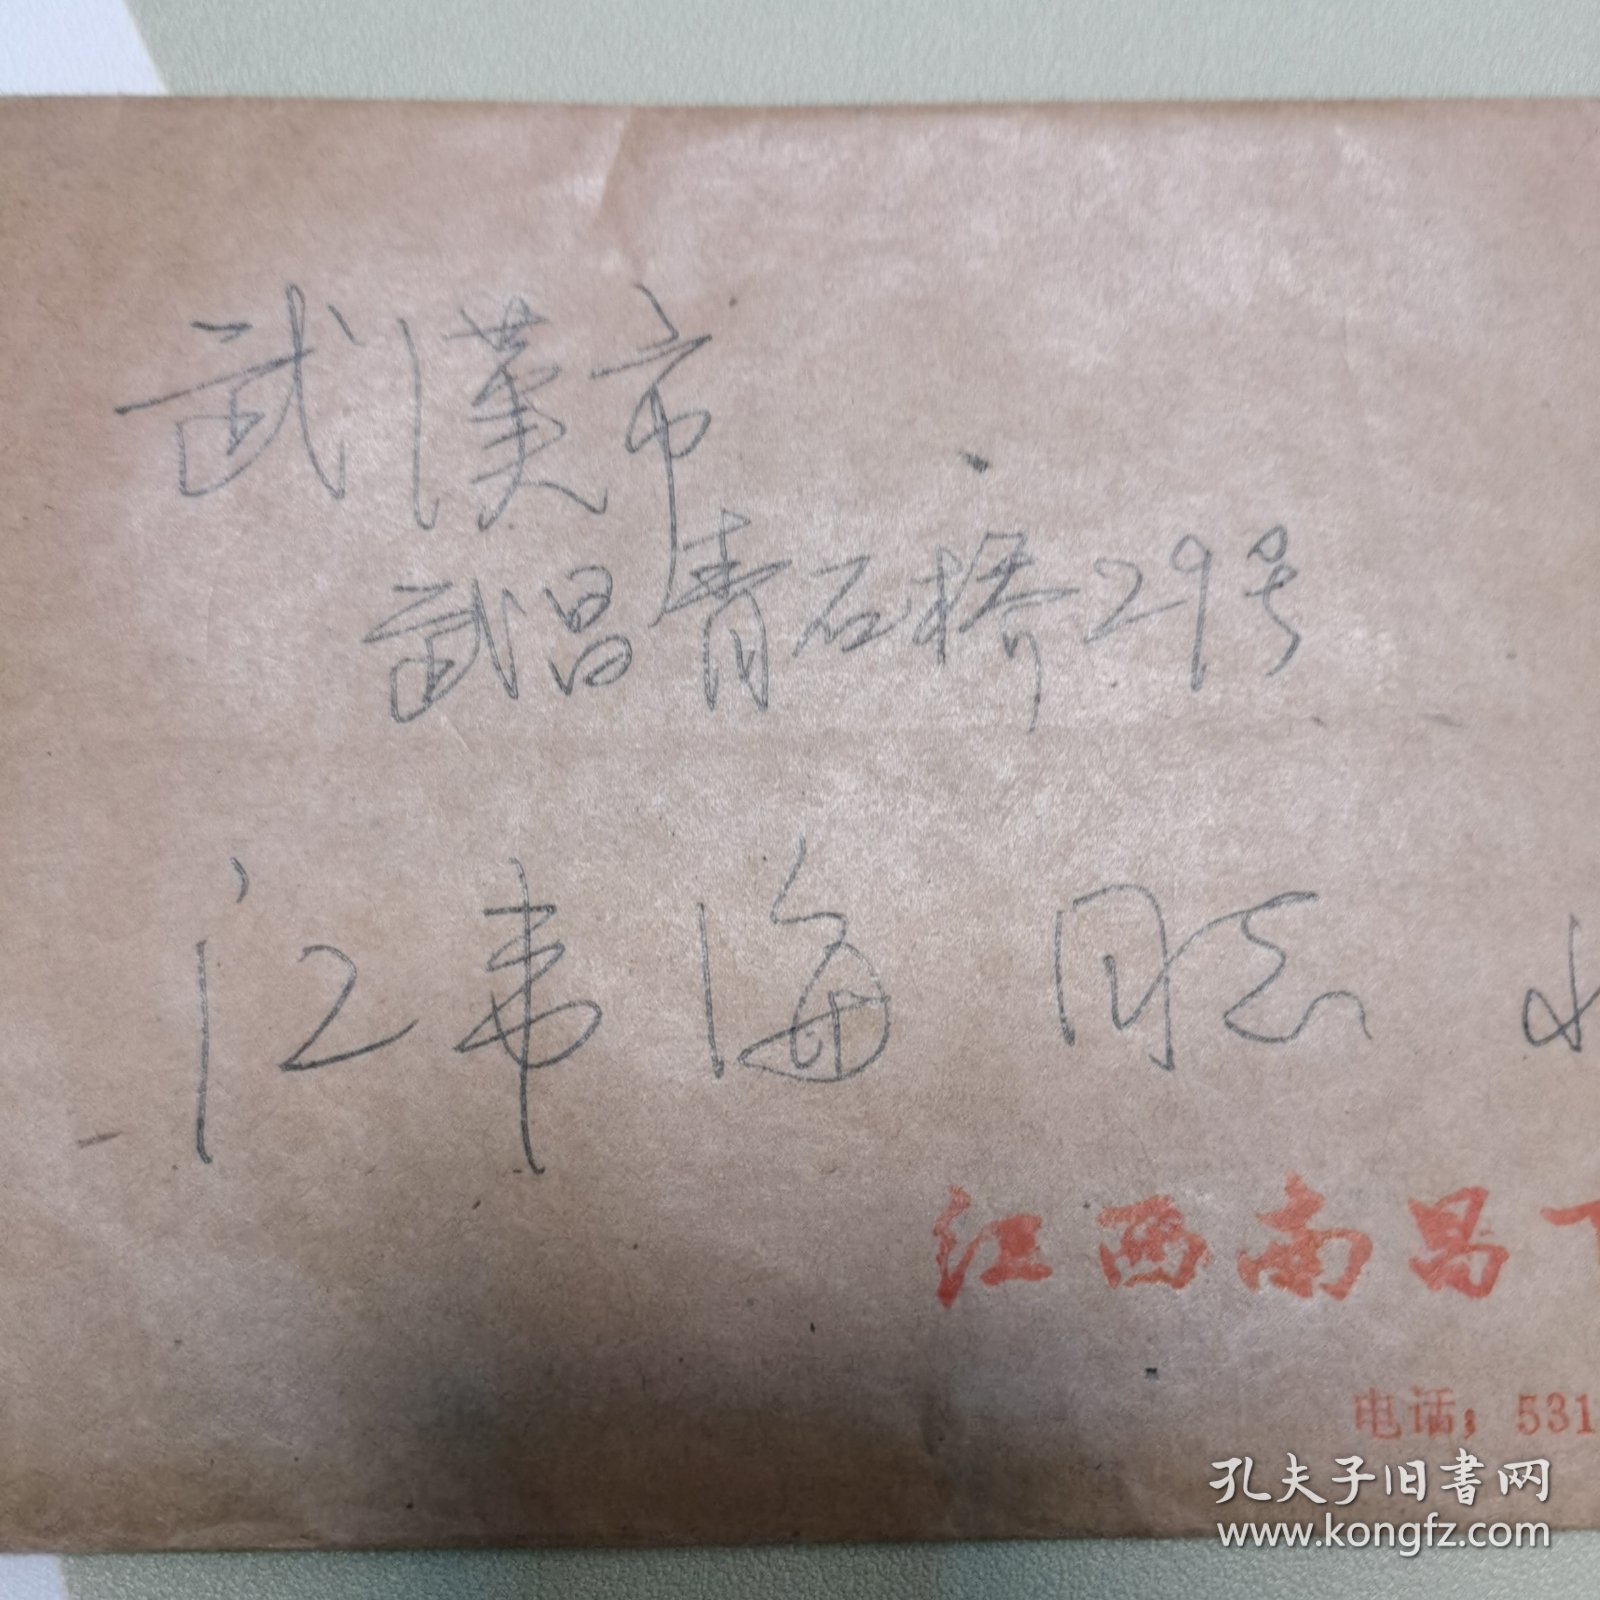 武漢市
武昌青石桥29号
江韦海 同志
江西南昌
电话：531
孔夫子旧书网
www.kongfz.com